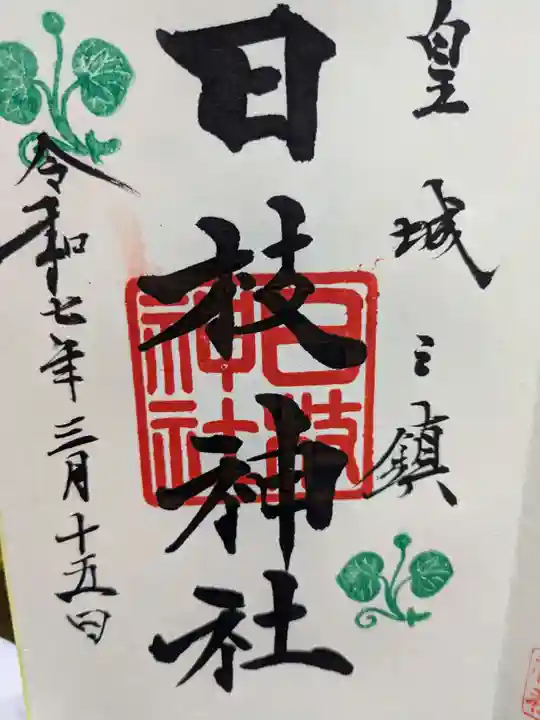 皇城之鎮
日枝神社
日枝神社
令和七年三月十五日